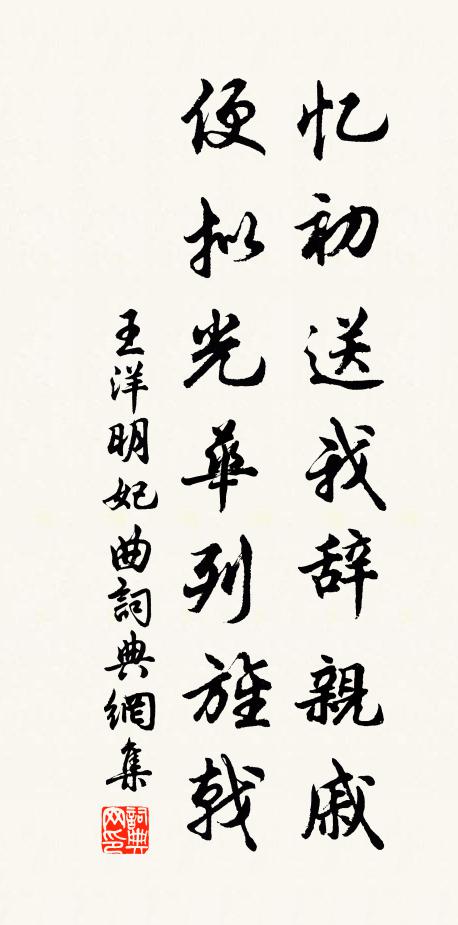 忆初送我辞親戚
便拟光華列旌戟
王洋明妃曲詞典網集
詞典网印